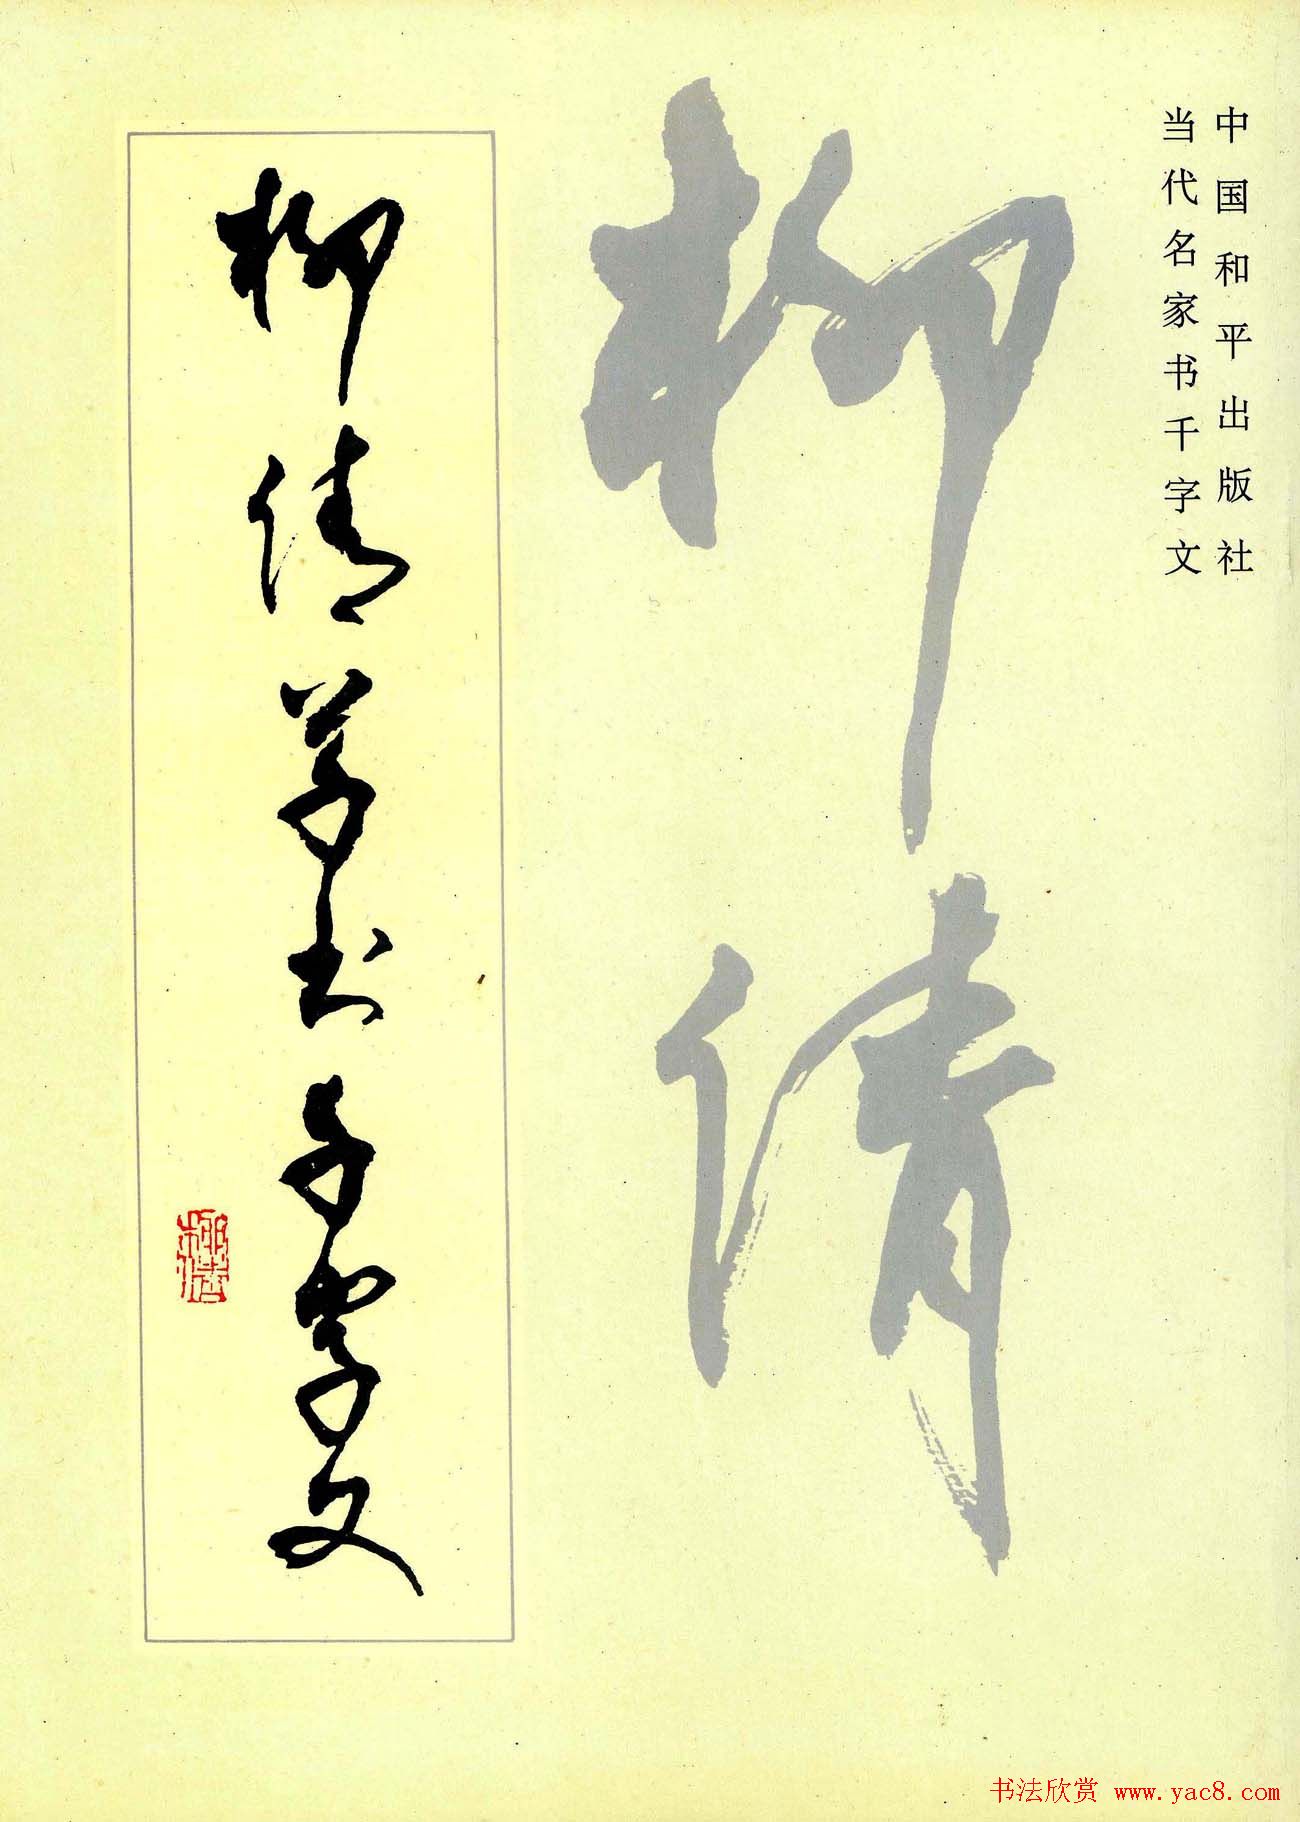 中国和平出版社
当代名家书千字文
柳倩
柳倩草书千字文
柳倩
书法欣赏 www.yac8.com